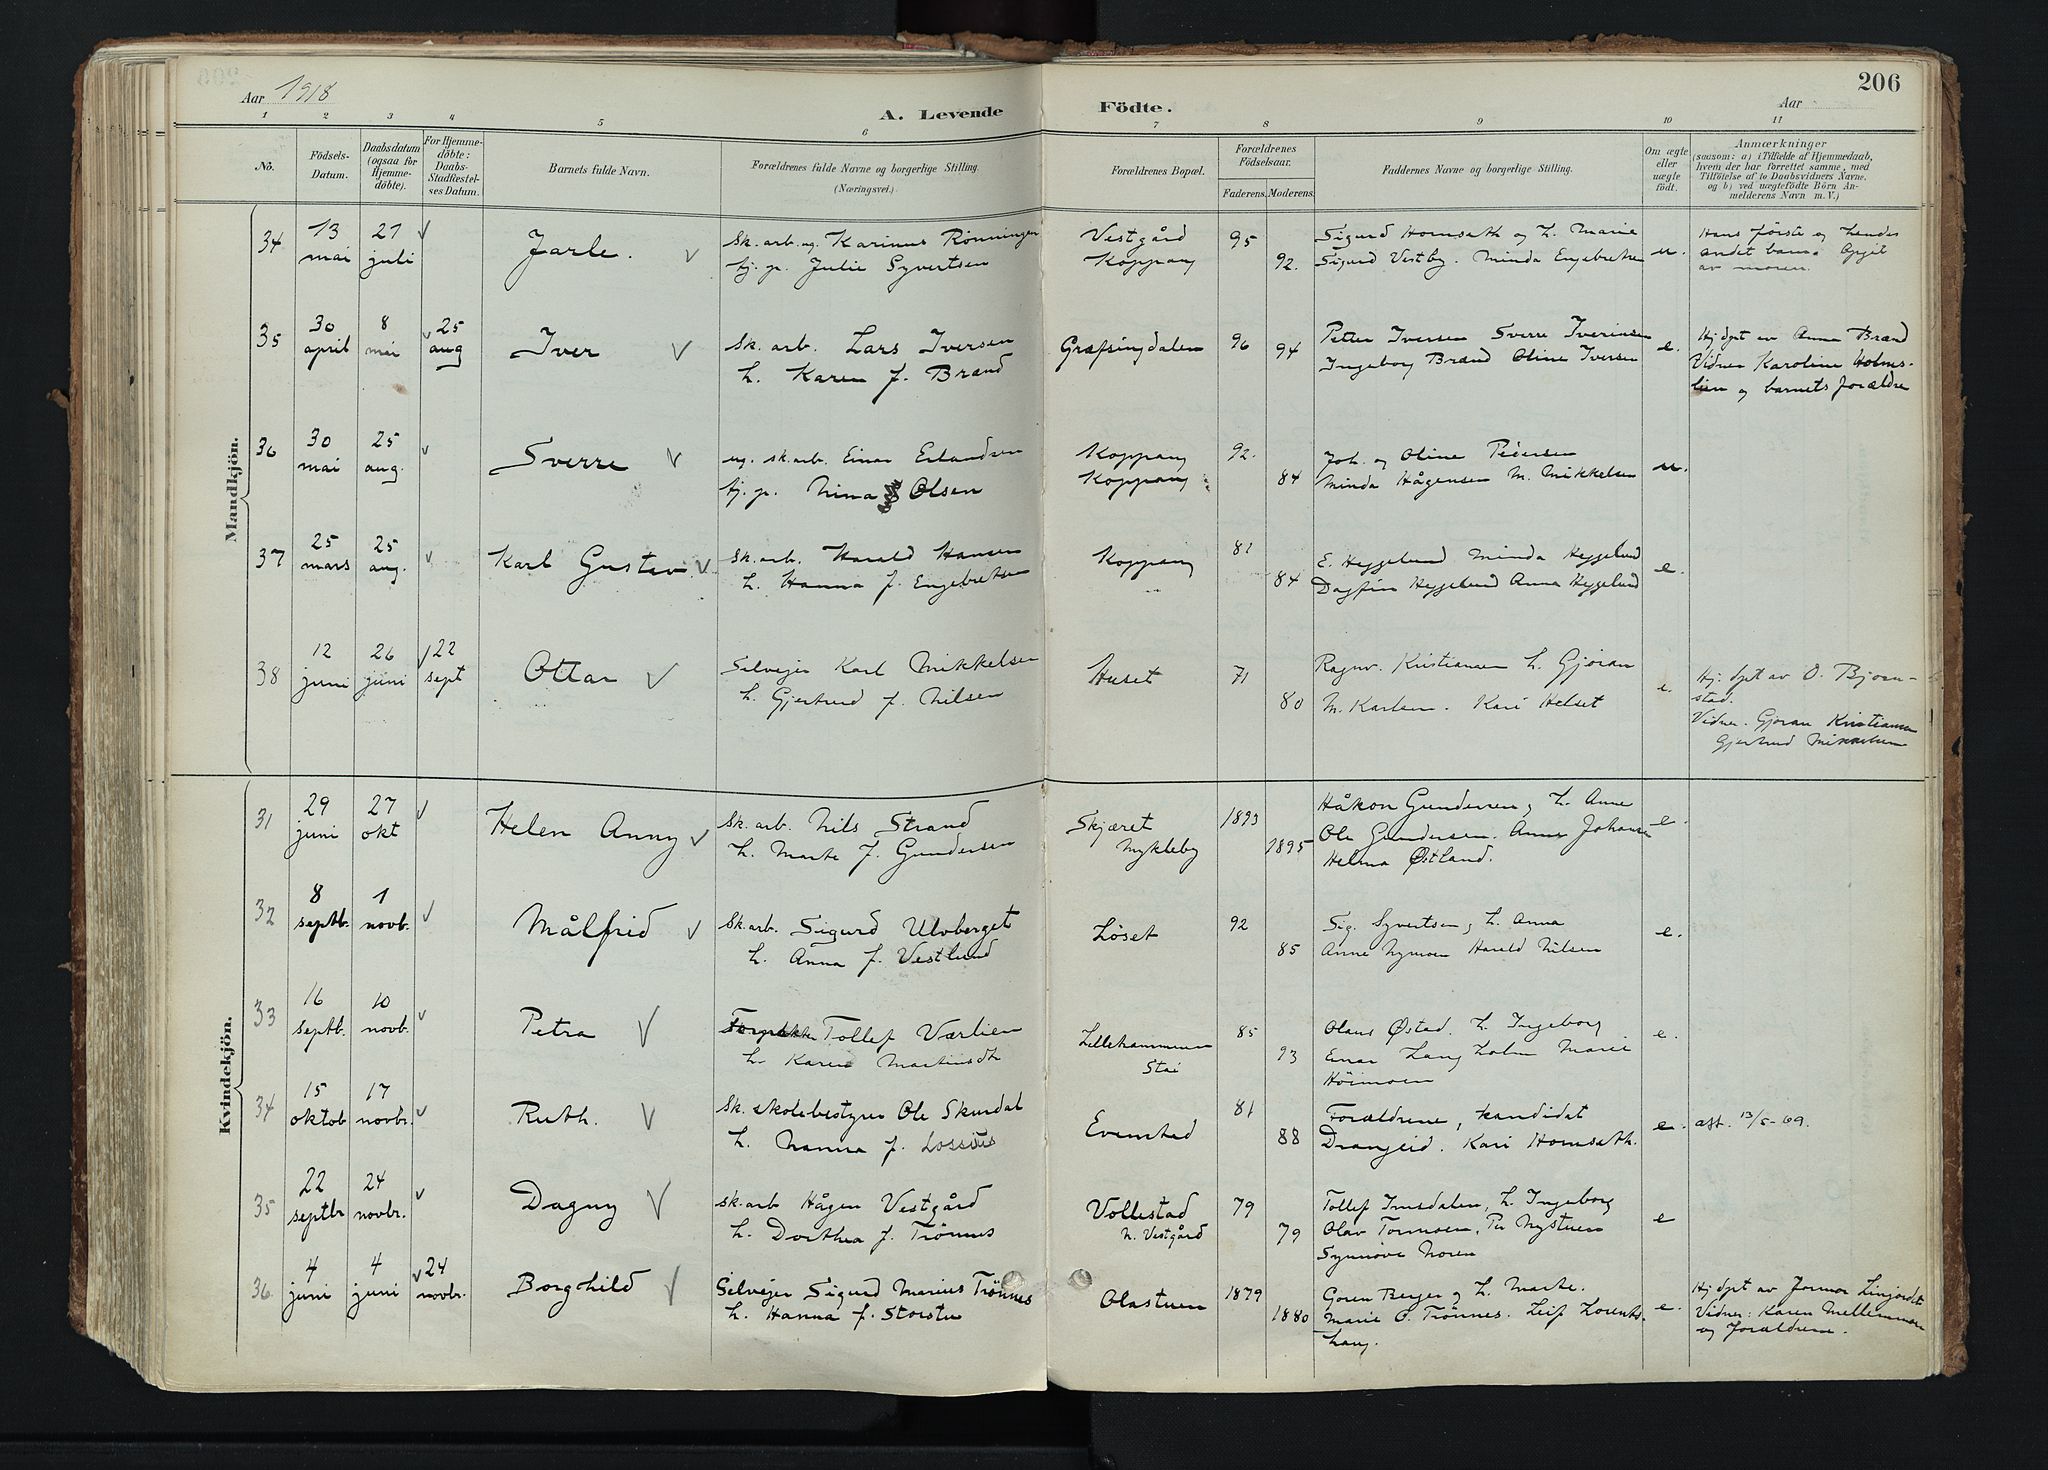 Aar 1918
A. Levende Födte.
Aar
206
1 2 3 4 5 6 7 8 9 10 11
No.
Födsels-Datum.
Daabsdatum (ogsaa for Hjemme-döbte).
For Hjemme-döbte: Daabs-Stadfæstel-ses Datum.
Barnets fulde Navn.
Forældrenes fulde Navne og borgerlige Stilling. (Næringsvei.)
Forældrenes Bopæl.
Forældrenes Födselsaar.
Faderens. Moderens.
Faddernes Navne og borgerlige Stilling.
Om ægte eller uægte födt.
Anmærkninger
(saasom: a) i Tilfælde af Hjemmedaab,
hvem der har forrettet samme, med
Tilföielse af to Daabsvidners Navne.
og b) ved uægtefödte Börn An-
melderens Navn m. V.)
Mandkjön.
34 13 mai 21 juli Jarle.
Sk. arb. ug. Karinus Rönningen
tj. p. Julie Syvertsen
Vestgård
Koppang
95 92.
Sigurd Hornseth og h. Marie
Sigurd Vestby. Minda Engebretsen
u.
Hans förste og hendes
andet barn. Opgit
av moren.
35 30 april 8 mai 25 aug Iver
Sk. arb. Lars Iversen
h. Karen f. Brænd
Græfsingdalen
96 94
Petter Iversen Sverre Iverinsen
Ingeborg Brænd Oline Iversen
e.
Hj. dpt av Anne Brænd
Vidner Karoline Holmes-
lien og barnets forældre
36 30 mai 25 aug. Sverre
ug. sk. arb. Einar Erlandsen
tj. p. Nina Olsen
Koppang
Koppang
92. 84
Joh. og Oline Pedersen
Minda Hågensen M. Mikkelsen
u.
37 25 mars 25 aug. Karl Gustav
Sk. arb. Harald Hansen
h. Hanna f. Engebretsen
Koppang
81 84
E. Heggelund Minda Heggelund
Dagfin Heggelund Anna Heggelund
e.
38 12 juni 26 juni 22 sept Ottar
Selvejer Karl Mikkelsen
h. Gjertrud f. Nilsen
Huset
71 80
Ragnv. Kristiansen h. Gjöran
M. Karlsen. Kari Helset
e.
Hj. dpt av O. Bjørn-
stad.
Vidner. Gjöran Kristiansen
Gjertrud Mikkelsen
Kvindekjön.
31 29 juni 27 okt Helen Anny
Sk. arb. Nils Strand
h. Marte f. Gundersen
Skjæret
Mykleby
1893 1895
Håkon Gundersen, h. Anne
Ole Gundersen. Anna Johanse
Helma Østland.
e.
32 8 septb. 1 novb. Målfrid
Sk. arb. Sigurd Ulvberget
h. Anna f. Vestlund
Löset
92 85
Sig. Syvertsen, h. Anna
Anne Nymoen Harald Nilsen
e.
33 16 septb. 10 novb. Petra
TollefVærlien
h. Karen Martinsdt
Lillehammeren
Stai
85 93
Olaus Østad. h. Ingeborg
Einar Langholm Marie
Höimoen
e.
34 15 oktob 17 novbr. Ruth.
Sk. skolebestyrer Ole Skurdal
h. Nanna f. Lossius
Evenstad
81 88
Forældrene, kandidat
Drangeid. Kari Hornseth.
e.
att. 13/5-69.
35 22 septbr 24 novbr. Dagny
Sk. arb Hågen Vestgård
h. Dorthea f. Trönnes
Vollestad
n. Vestgård
79 79
Tollef Imsdalen, h. Ingeborg
Olav Tormoen, Per Nystuen
Synnöve Noren
e
36. 4 juni 4 juni 24 novbr. Borghild
Selvejer Sigurd Marius Trönnes
h. Hanna f. Storstu
Olastuen
1879 1880
Gören Berger og h. Marte.
Marie O. Trönnes. Leif Lorents.
Haug.
e.
Hj. dpt av Jormor Linjordet
Vidner: Karen Mellemmoen
og forældrene.